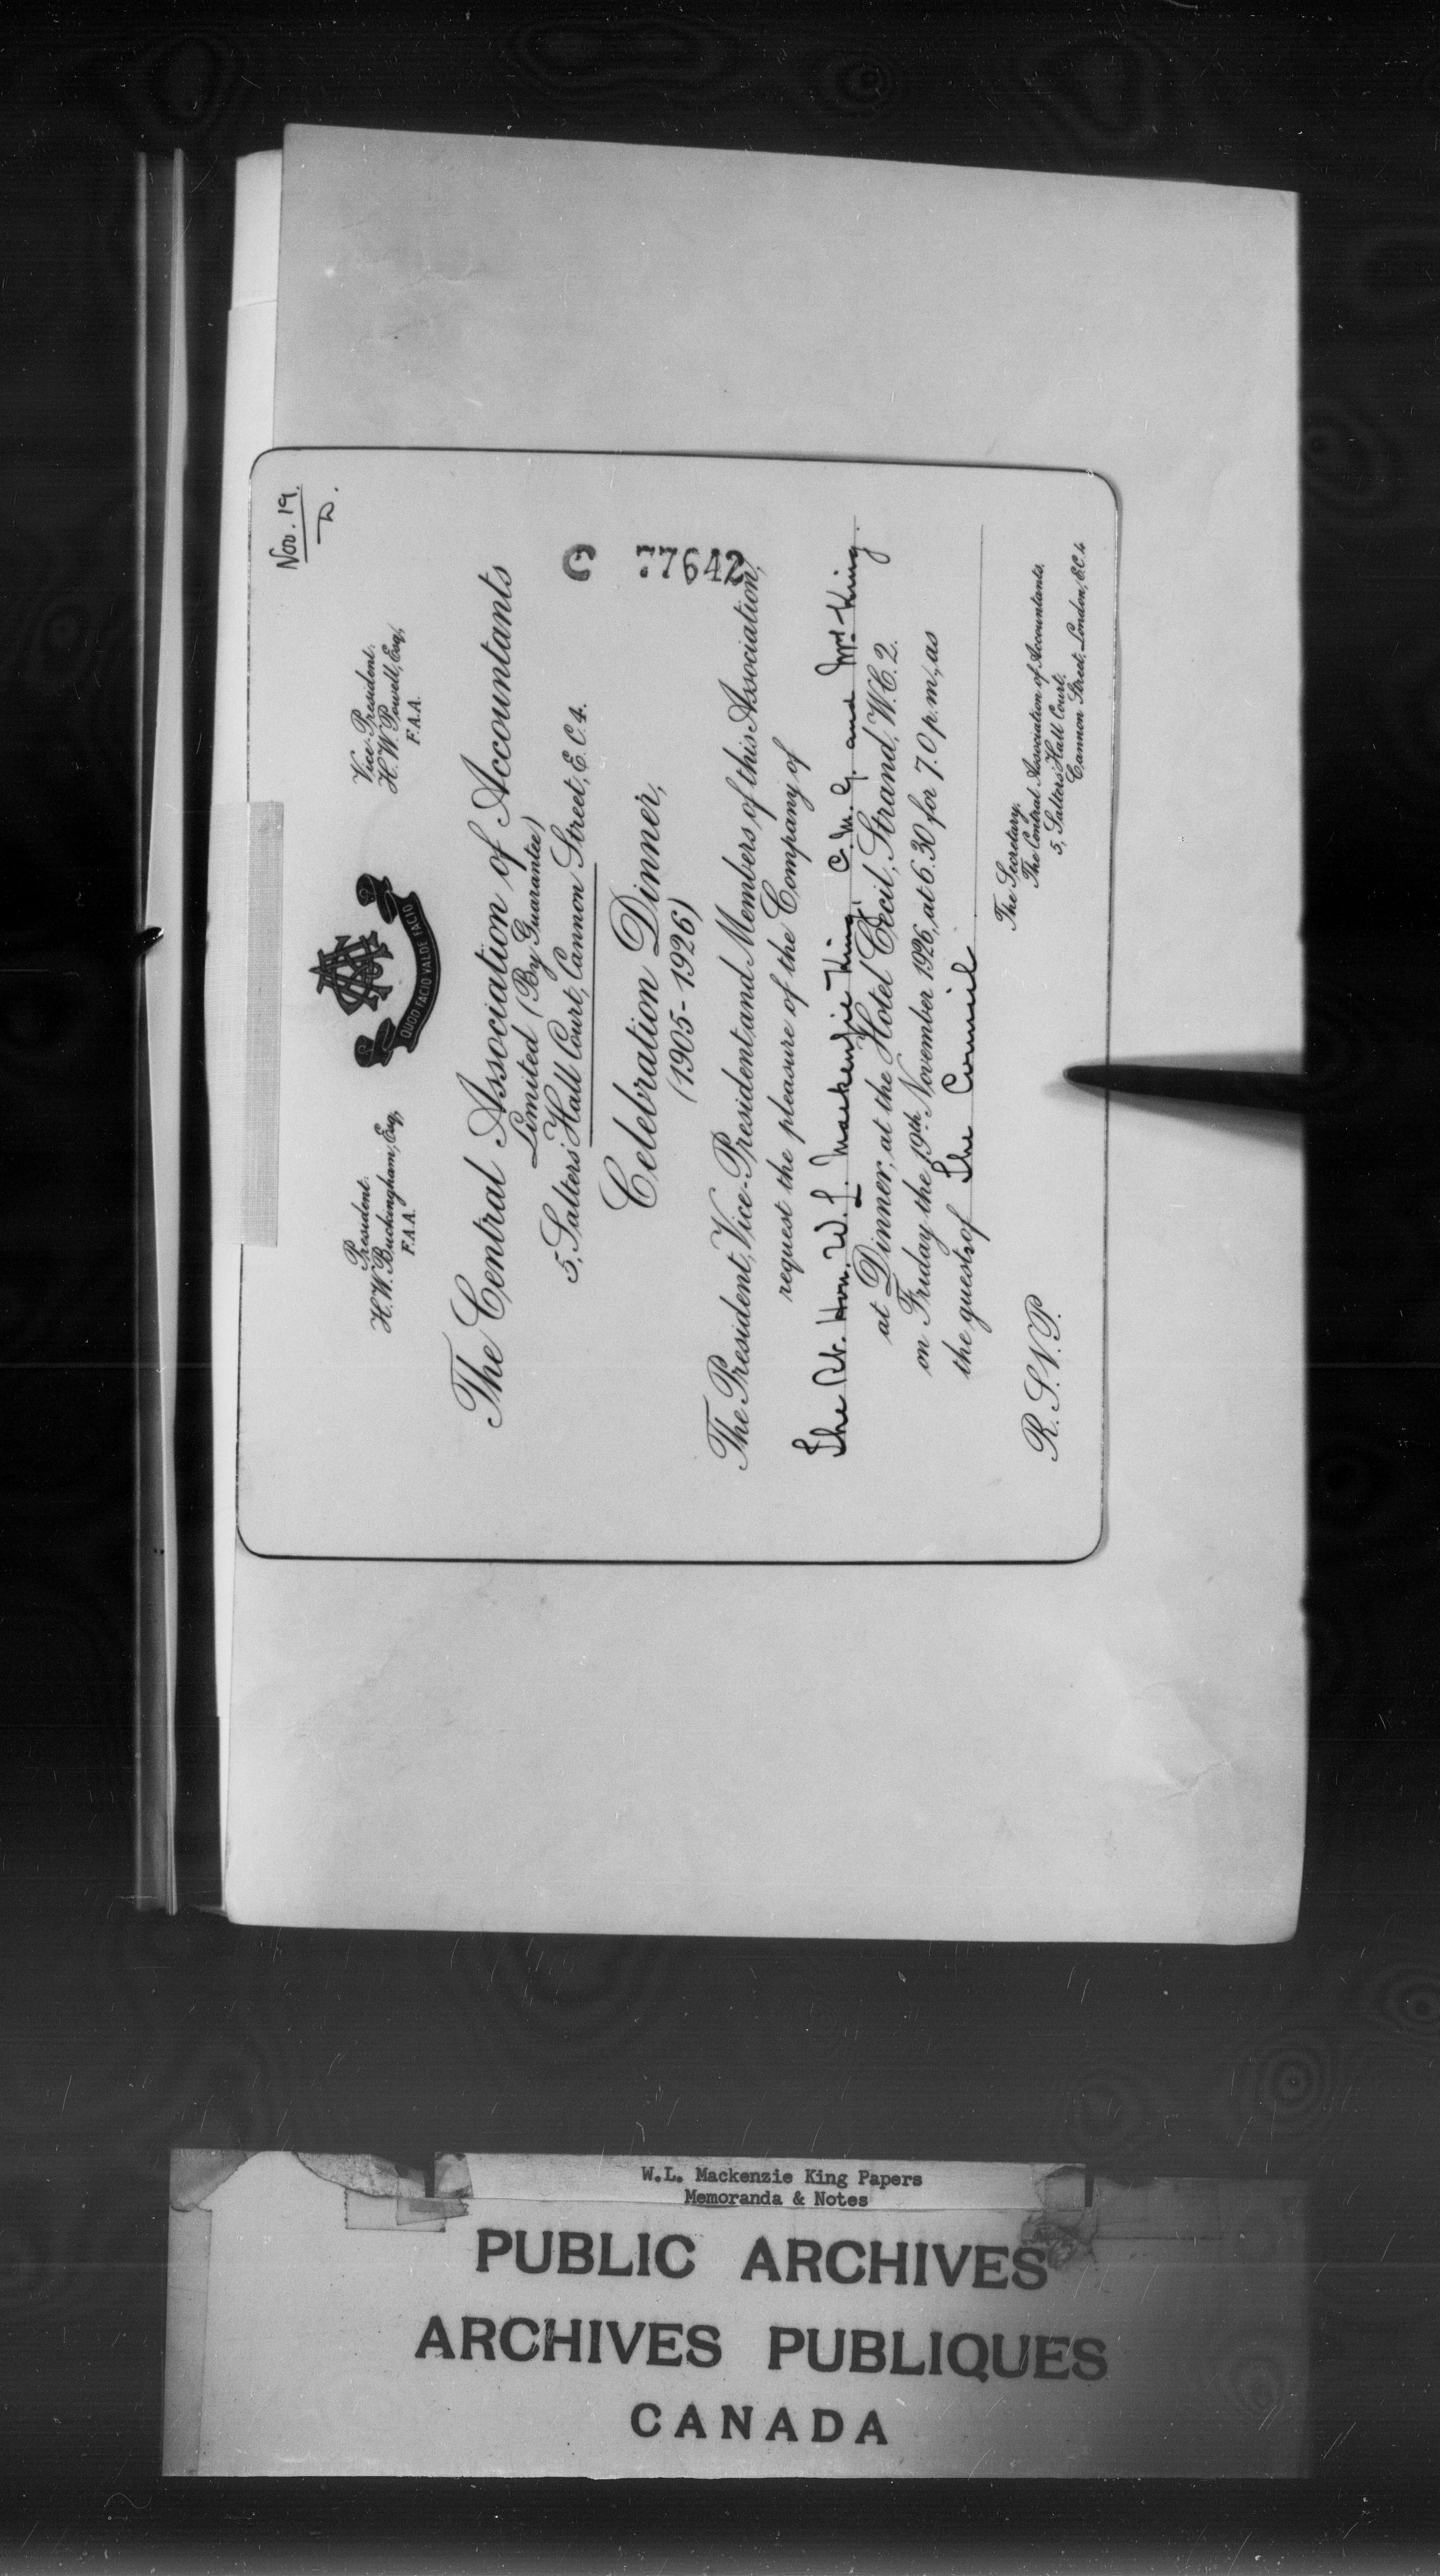 Nov. 19.
D.
President.
H.W. Buckingham, Esq,
F.A.A.
QUOD FACIO VALDE FACIO
Vice-President.
H.W. Powell, Esq,
F.A.A.
The Central Association of Accountants
Limited (By Guarantee)
5, Salters' Hall Court, Cannon Street, E.C.4.
C 77642
Celebration Dinner,
(1905-1926)
The President, Vice-President and Members of this Association,
request the pleasure of the Company of
The Rt. Hon. W. L. Mackenzie King, C.M.G. and Mrs. King
at Dinner, at the Hotel Cecil, Strand, W.C.2.
on Friday the 19th November 1926, at 6.30 for 7.0 p.m., as
the guests of The Council
R.S.V.P.
The Secretary,
The Central Association of Accountants,
5, Salters' Hall Court,
Cannon Street, London, E.C.4
W.L. Mackenzie King Papers
Memoranda & Notes
PUBLIC ARCHIVES
ARCHIVES PUBLIQUES
CANADA